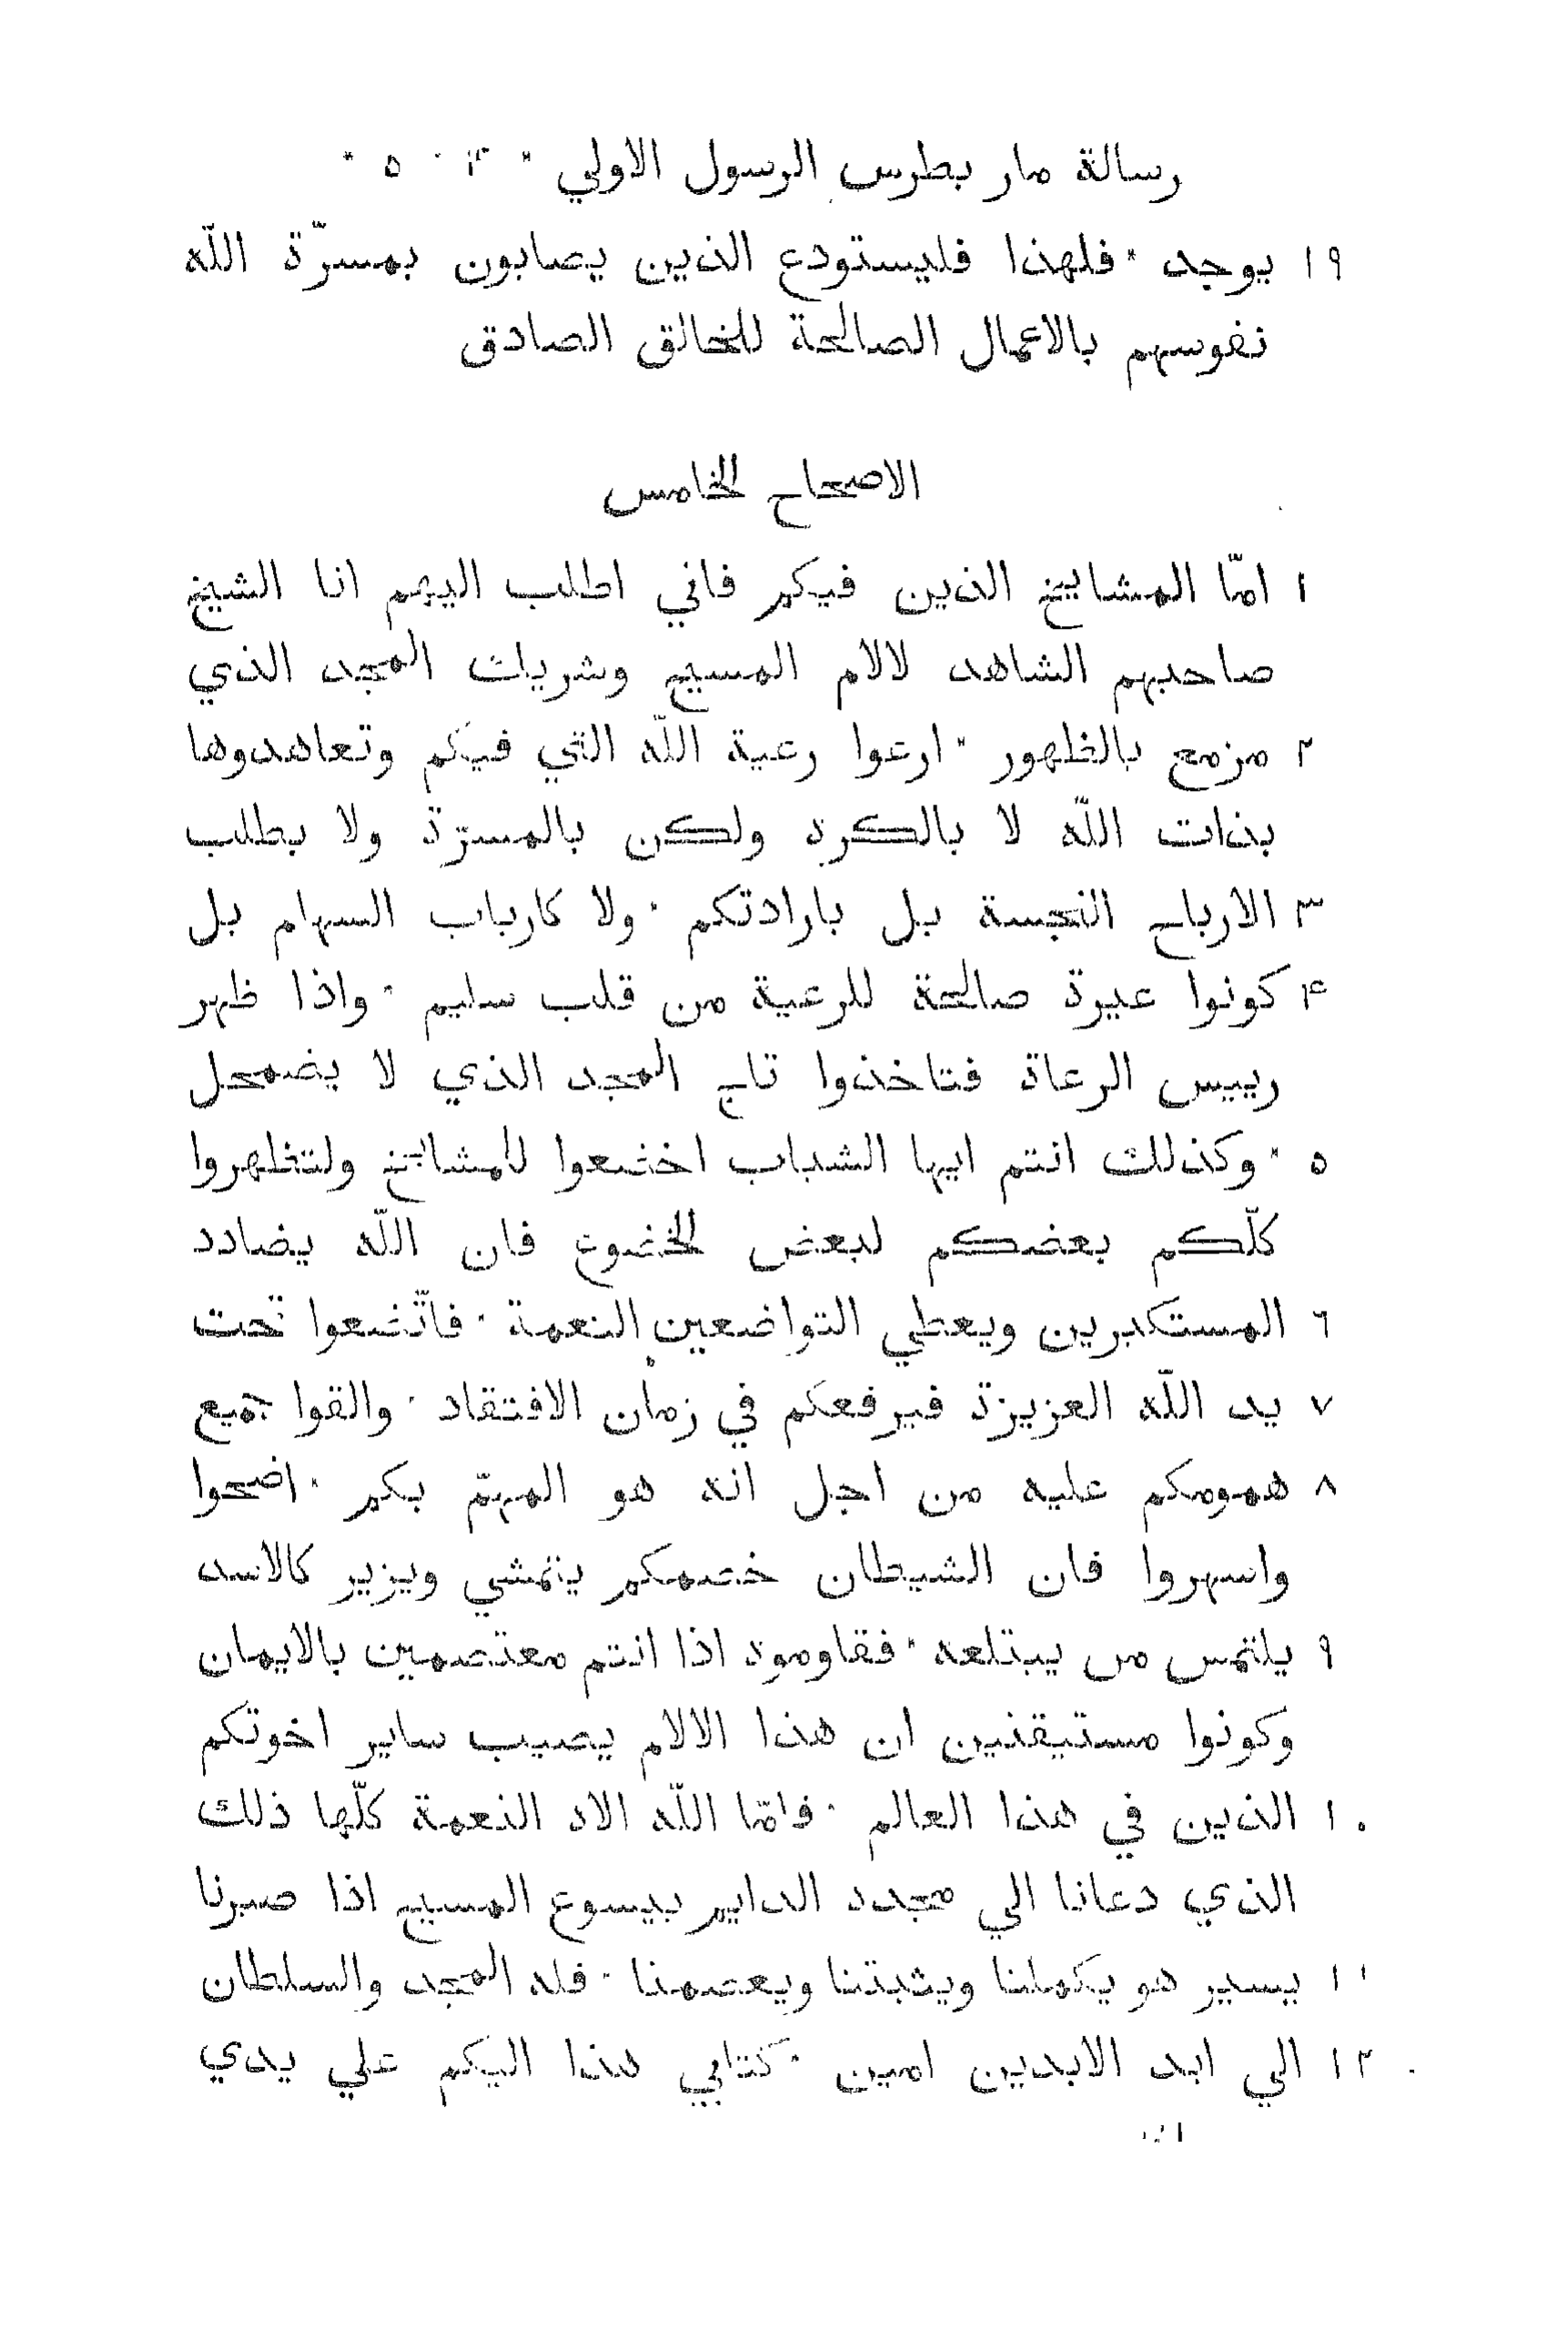 رسالة مار بطرس الرسول الاولي * ۴ * ٥ *
١٩ يوجد * فلهذا فليستودع الذين يصابون بمسرّة اللّه
نفوسهم بالاعمال الصالحة للخالق الصادق
الاصحاح الخامس
١ امّا المشايخ الذين فيكم فاني اطلب اليهم انا الشيخ
صاحبهم الشاهد لالام المسيح وشريك المجد الذي
٢ مزمع بالظهور * ارعوا رعية اللّه التي فيكم وتعاهدوها
بذات اللّه لا بالكره ولكن بالمسرّة ولا بطلب
٣ الارباح النجسة بل بارادتكم * ولا كارباب السهام بل
۴ كونوا عبرة صالحة للرعية من قلب سليم * واذا ظهر
رييس الرعاة فتاخذوا تاج المجد الذي لا يضمحل
٥ * وكذلك انتم ايها الشباب اخضعوا للمشايخ ولتظهروا
كلّكم بعضكم لبعض الخضوع فان اللّه يضادد
٦ المستكبرين ويعطي التواضعين النعمة * فاتّضعوا تحت
٧ يد اللّه العزيزة فيرفعكم في زمان الافتقاد * والقوا جميع
٨ همومكم عليه من اجل انه هو المهتمّ بكم * اضحوا
واسهروا فان الشيطان خصمكم يتمشي ويزير كالاسد
٩ يلتمس من يبتلعه * فقاوموه اذا انتم معتصمين بالايمان
وكونوا مستيقنين ان هذا الالام يصيب ساير اخوتكم
١٠ الذين في هذا العالم * فامّا اللّه الاه النعمة كلّها ذلك
الذي دعانا الي مجده الدايم بيسوع المسيح اذا صبرنا
١١ يسير هو يكملنا ويثبتنا ويعصمنا * فله المجد والسلطان
١٢ الي ابد الابدين امين * كتابي هذا اليكم علي يدي